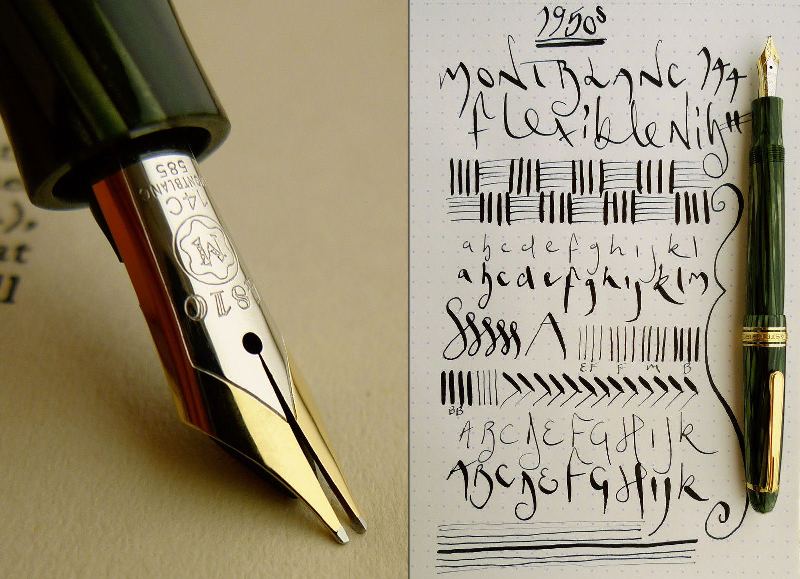 4810
M
14C
MONTBLANC
585
1950s
MONTBLANC 144
flexible Nib
abcdefghijkl
abcdefghijklm
EF F M B
BB
ABCDEFGHIJK
ABCDEFGHIJK